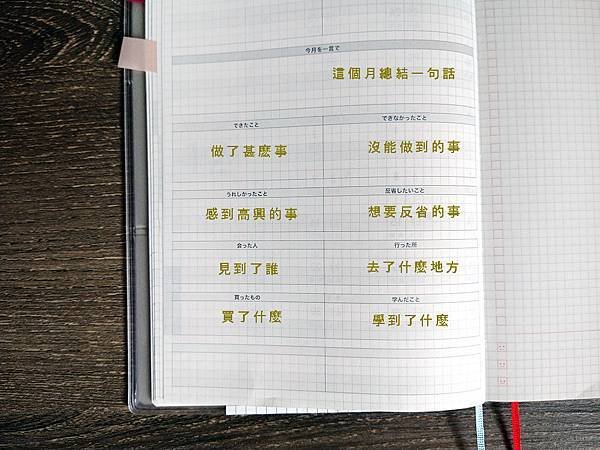 今月を一言で
這個月總結一句話
できたこと
できなかったこと
做了甚麽事
沒能做到的事
うれしかったこと
反省したいこと
感到高興的事
想要反省的事
会った人
行った所
見到了誰
去了什麼地方
買ったもの
学んだこと
買了什麼
學到了什麼